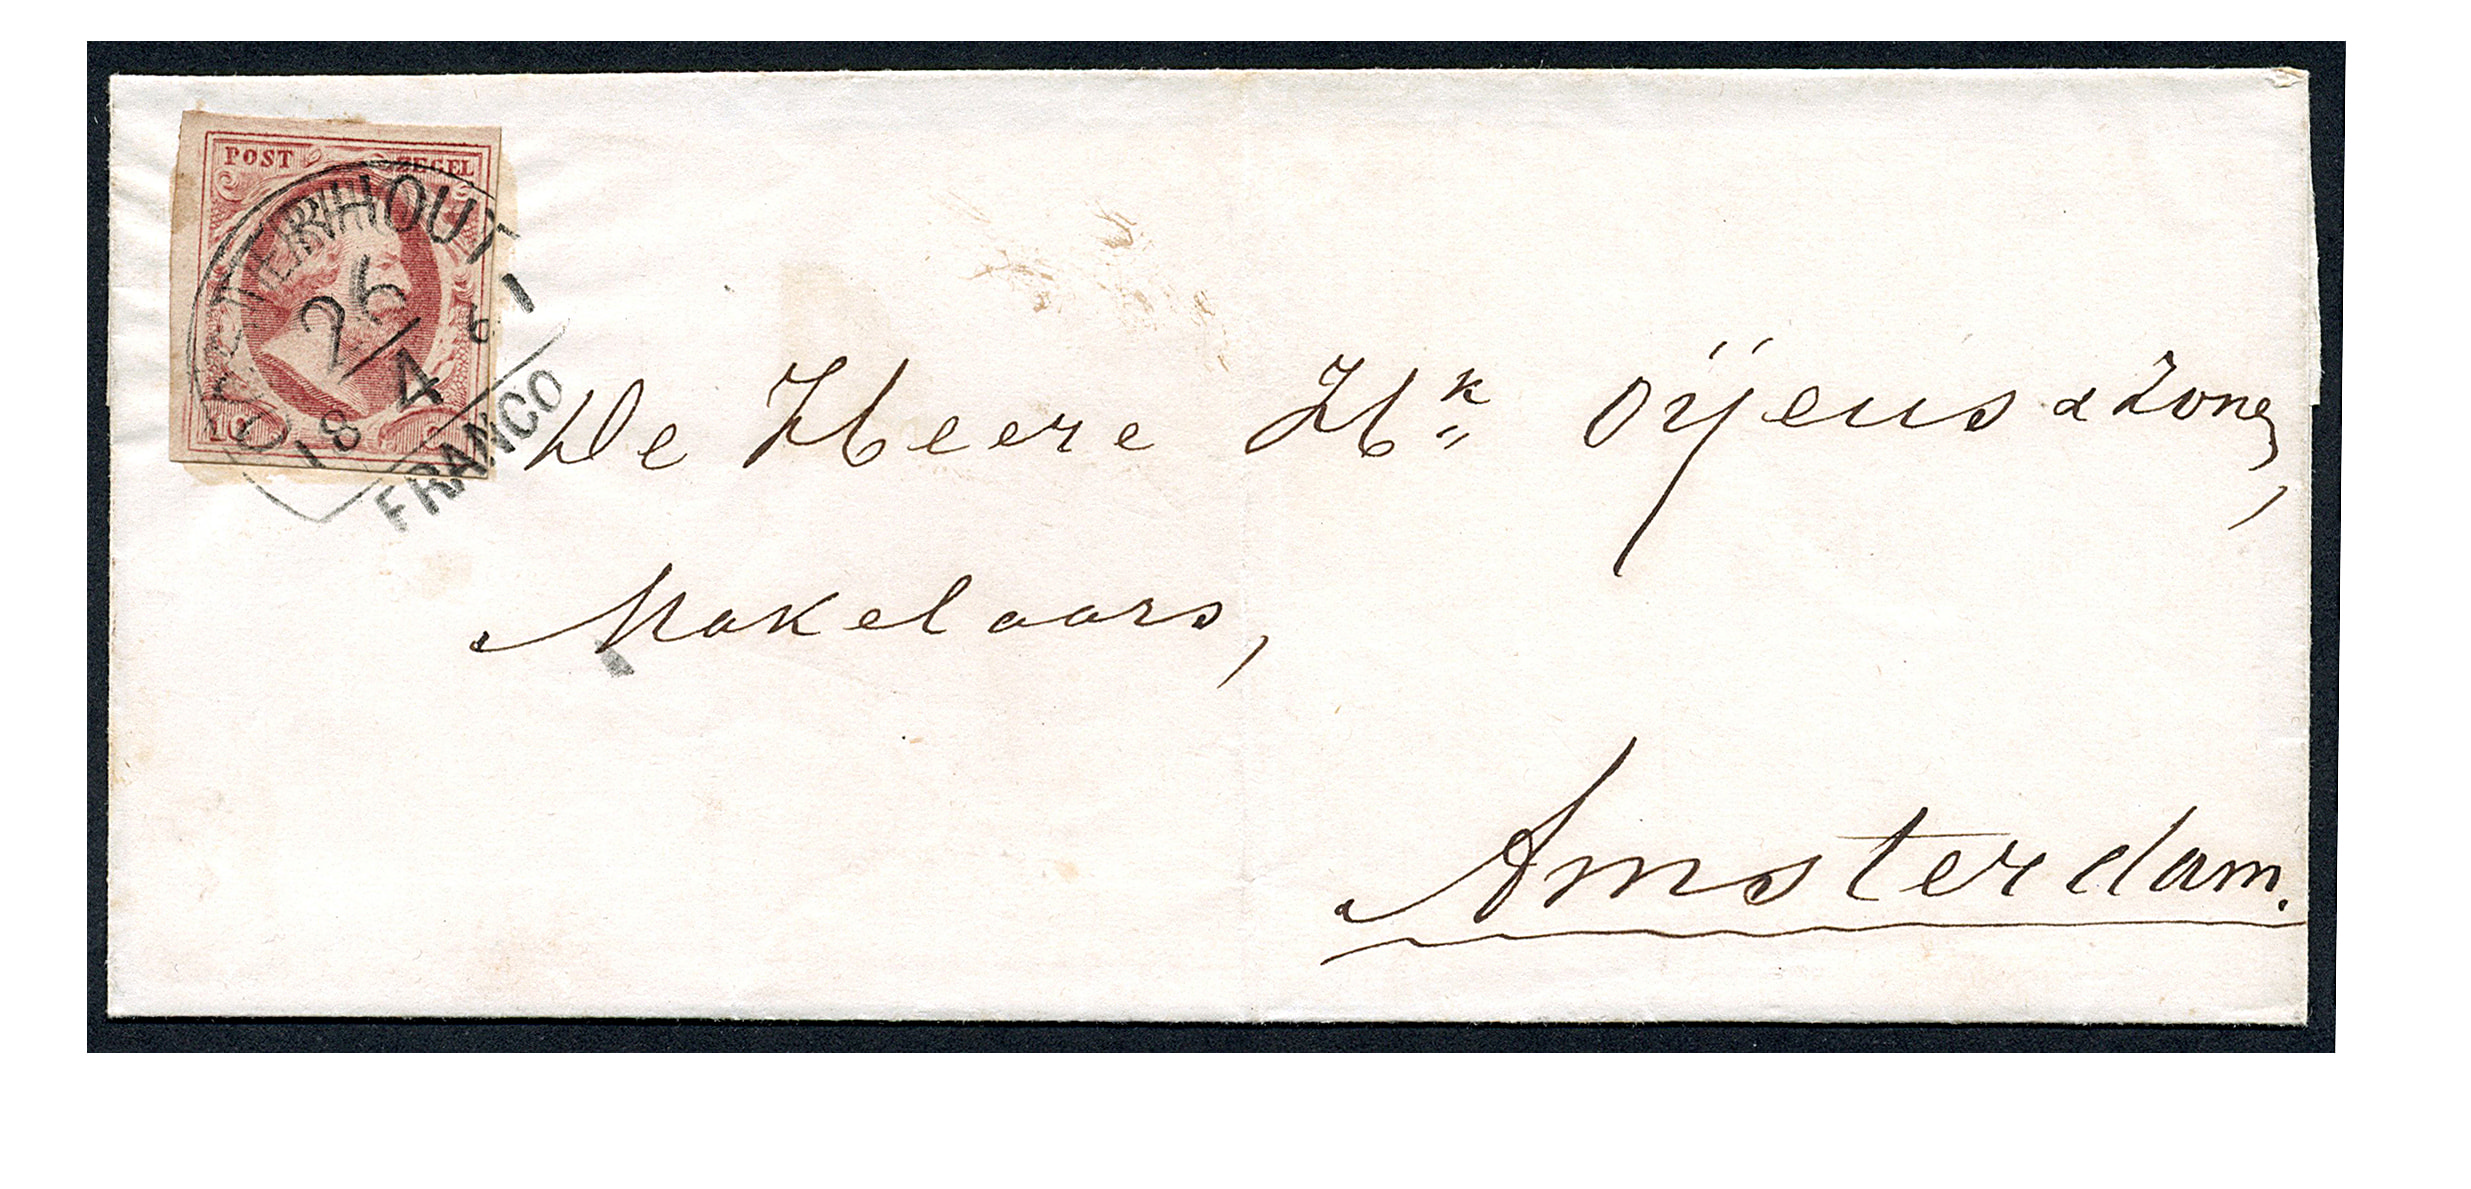 POST ZEGEL
10 C
26
4
18 61
FRANCO
De Heere Hk Oÿens & Zonen,
Makelaars,
Amsterdam.